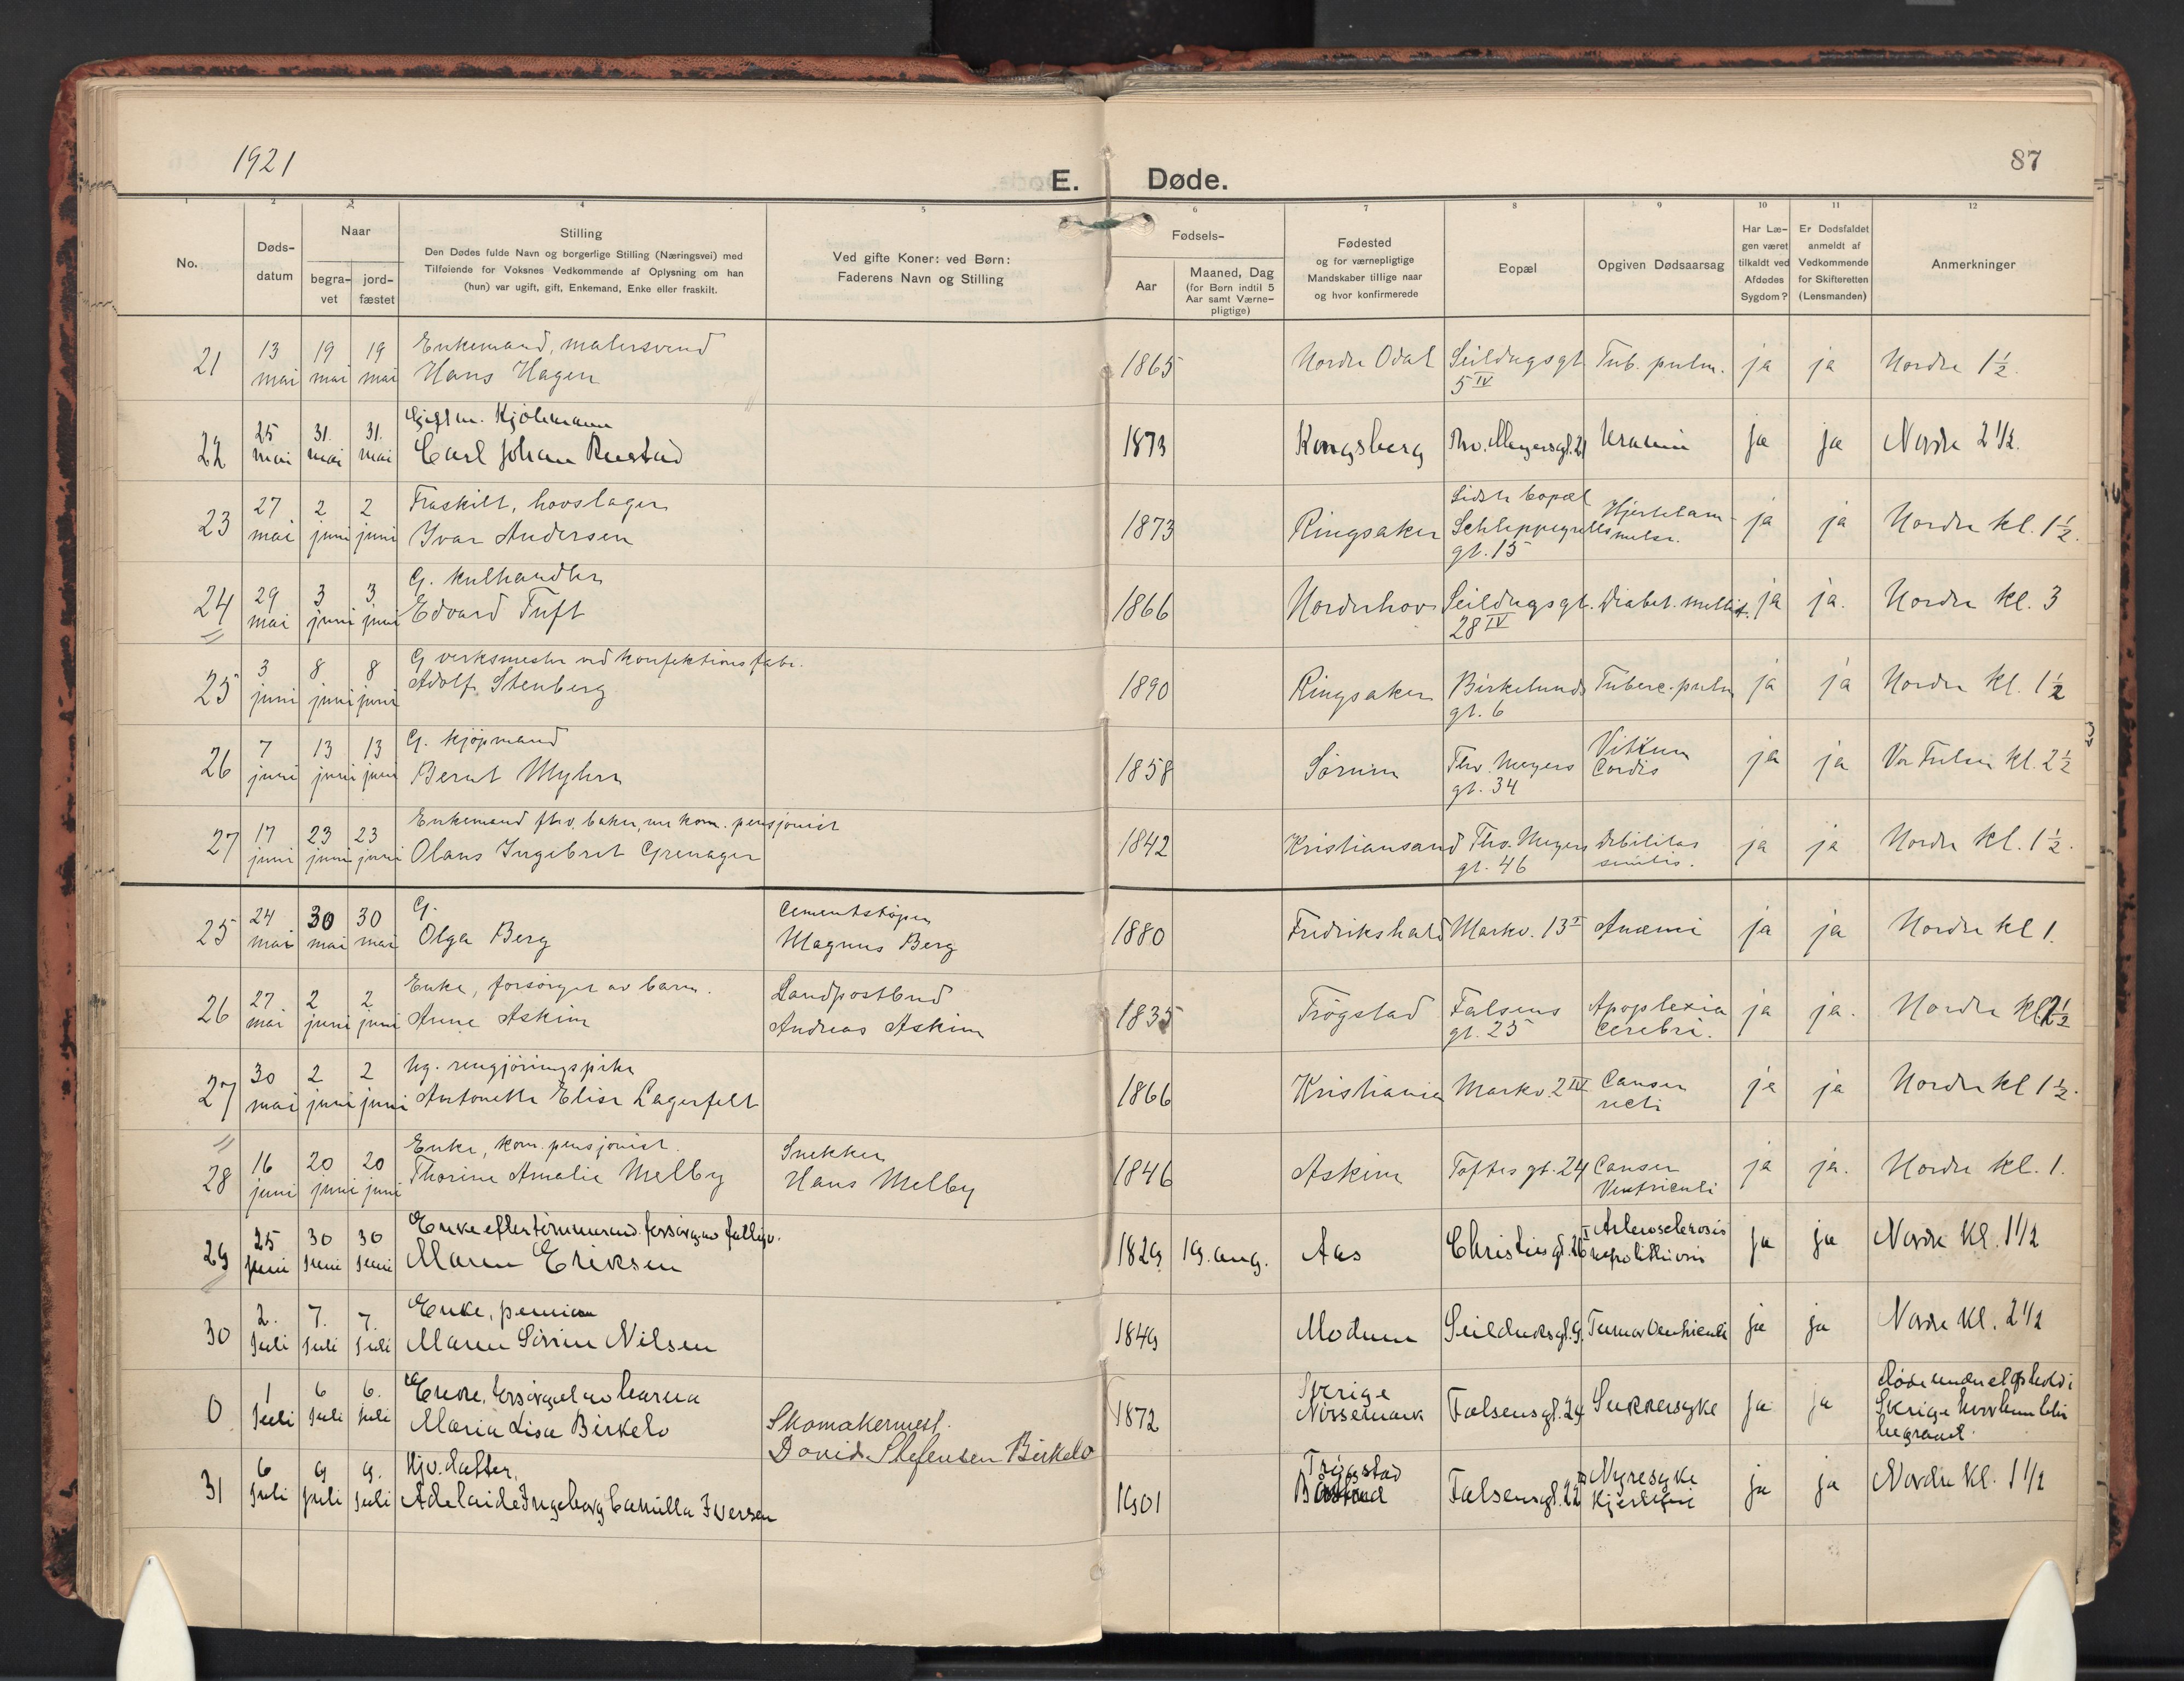 1921
E. Døde.
87
1 2 3 4 5 6 7 8 9 10 11 12
No.
Døds-
datum
Naar
begra-
vet
jord-
fæstet
Stilling
Den Dødes fulde Navn og borgerlige Stilling (Næringsvei) med
Tilføiende for Voksnes Vedkommende af Oplysning om han
(hun) var ugift, gift, Enkemand, Enke eller fraskilt.
Ved gifte Koner: ved Børn:
Faderens Navn og Stilling
Fødsels-
Aar
Maaned, Dag
(for Børn indtil 5
Aar samt Værne-
pligtige)
Fødested
og for værnepligtige
Mandskaber tillige naar
og hvor konfirmerede
Eopæl
Opgiven Dødsaarsag
Har Læ-
gen været
tilkaldt ved
Afdødes
Sygdom?
Er Dødsfaldet
anmeldt af
Vedkommende
for Skifteretten
(Lensmanden)
Anmerkninger
21 13 mai 19 mai 19 mai
Enkemand, malersvend
Hans Hagen
1865 Nordre Odal Seildugsgt. 5 IV Tub. pulm. ja ja Nordre 1½.
22 25 mai 31. mai 31. mai
Gift m.
Carl Johan Rustad
1873 Kongsberg Thv. Meyersgt. 21 Uræmi ja ja Nordre 2½.
23 27 mai 2 juni 2 juni
Fraskilt, hovslager
Ivar Andersen
1873 Ringsaker Sidste bopæl Schleppegrells gt. 15 Hjertelammelse. ja ja Nordre kl. 1½.
24 29 mai 3 juni 3 juni
G. kulhandler
Edvard Tuft
1866 Norderhov Seildugsgt. 28 IV Diabet. mellit. ja ja. Nordre kl. 3
25 3 juni 8 juni 8 juni
G verksmester ved konfektionsfabr.
Adolf Stenberg
1890 Ringsaker Birkelunds gt. 6 Tuberc. pulm ja ja Nordre kl. 1½
26 7 juni 13 juni 13 juni
G. kjøpmand
Bernt Myhre
1858 Sørum Thv. Meyers gt. 34 Vitium Cordis ja ja Vor Frelser kl. 2½
27 17 juni 23 juni 23 juni
Enkemand fhv. baker, nu kom. pensjonist
Olaus Ingebret Grenager
1842 Kristiansand Thv. Meyers gt. 46 Debilitas senilis. ja ja Nordre kl. 1½.
25 24 mai 30 mai 30 mai
G.
Olga Berg
Cementstøper
Magnus Berg
1880 Fredrikshald Markv. 13 I Anæmi ja ja Nordre kl 1.
26 27 mai 2 juni 2 juni
Enke, forsørget av barn.
Anne Askim
Landpostbud
Andreas Askim
1835 Trøgstad Falsens gt. 25 Apoplexia Cerebri. ja ja. Nordre kl. 2½
27 30 mai 2 juni 2 juni
Ug. rengjøringspike
Antonette Elise Lagerfelt
1866 Kristiania Markv. 2 IV Cancer recti ja ja Nordre kl 1½.
28 16 juni 20 juni 20 juni
Enke, kom. pensjonist.
Thorine Amalie Melby
Snekker
Hans Melby
1846 Askim Toftes gt. 24 Cancer Ventriculi ja ja. Nordre kl. 1.
29 25 juni 30 juni 30 juni
Enke efter tømmermd. forsørg. av fattigv.
Maren Eriksen
1829 19. aug. Aas Christiesgt. 26 I Arterosclerosis ja ja Nordre kl. 1½
30 2. Juli 7. juli 7. juli
Enke,
Maren Sørine Nilsen
1849 Modum Seilduksgt. 9 Tumor Ventriculi ja ja Nordre kl. 2½
0 1 Juli 6 juli 6. juli
Enke, forsørget av barna
Maria Lisa Birkelo
Skomakermest.
David Stefensen Birkelo
1872 Sverige Nössemark Falsensgt. 24 Sukkersyke ja ja Døde under et ophold i Sverige hvor hun blir begravet.
31 6 Juli 9 juli 9. juli
Hjv. datter,
Adelaide Ingeborg Camilla Iversen
1901 Trøgstad Falsensgt. 22 Nyresyke ja ja Nordre kl. 1½